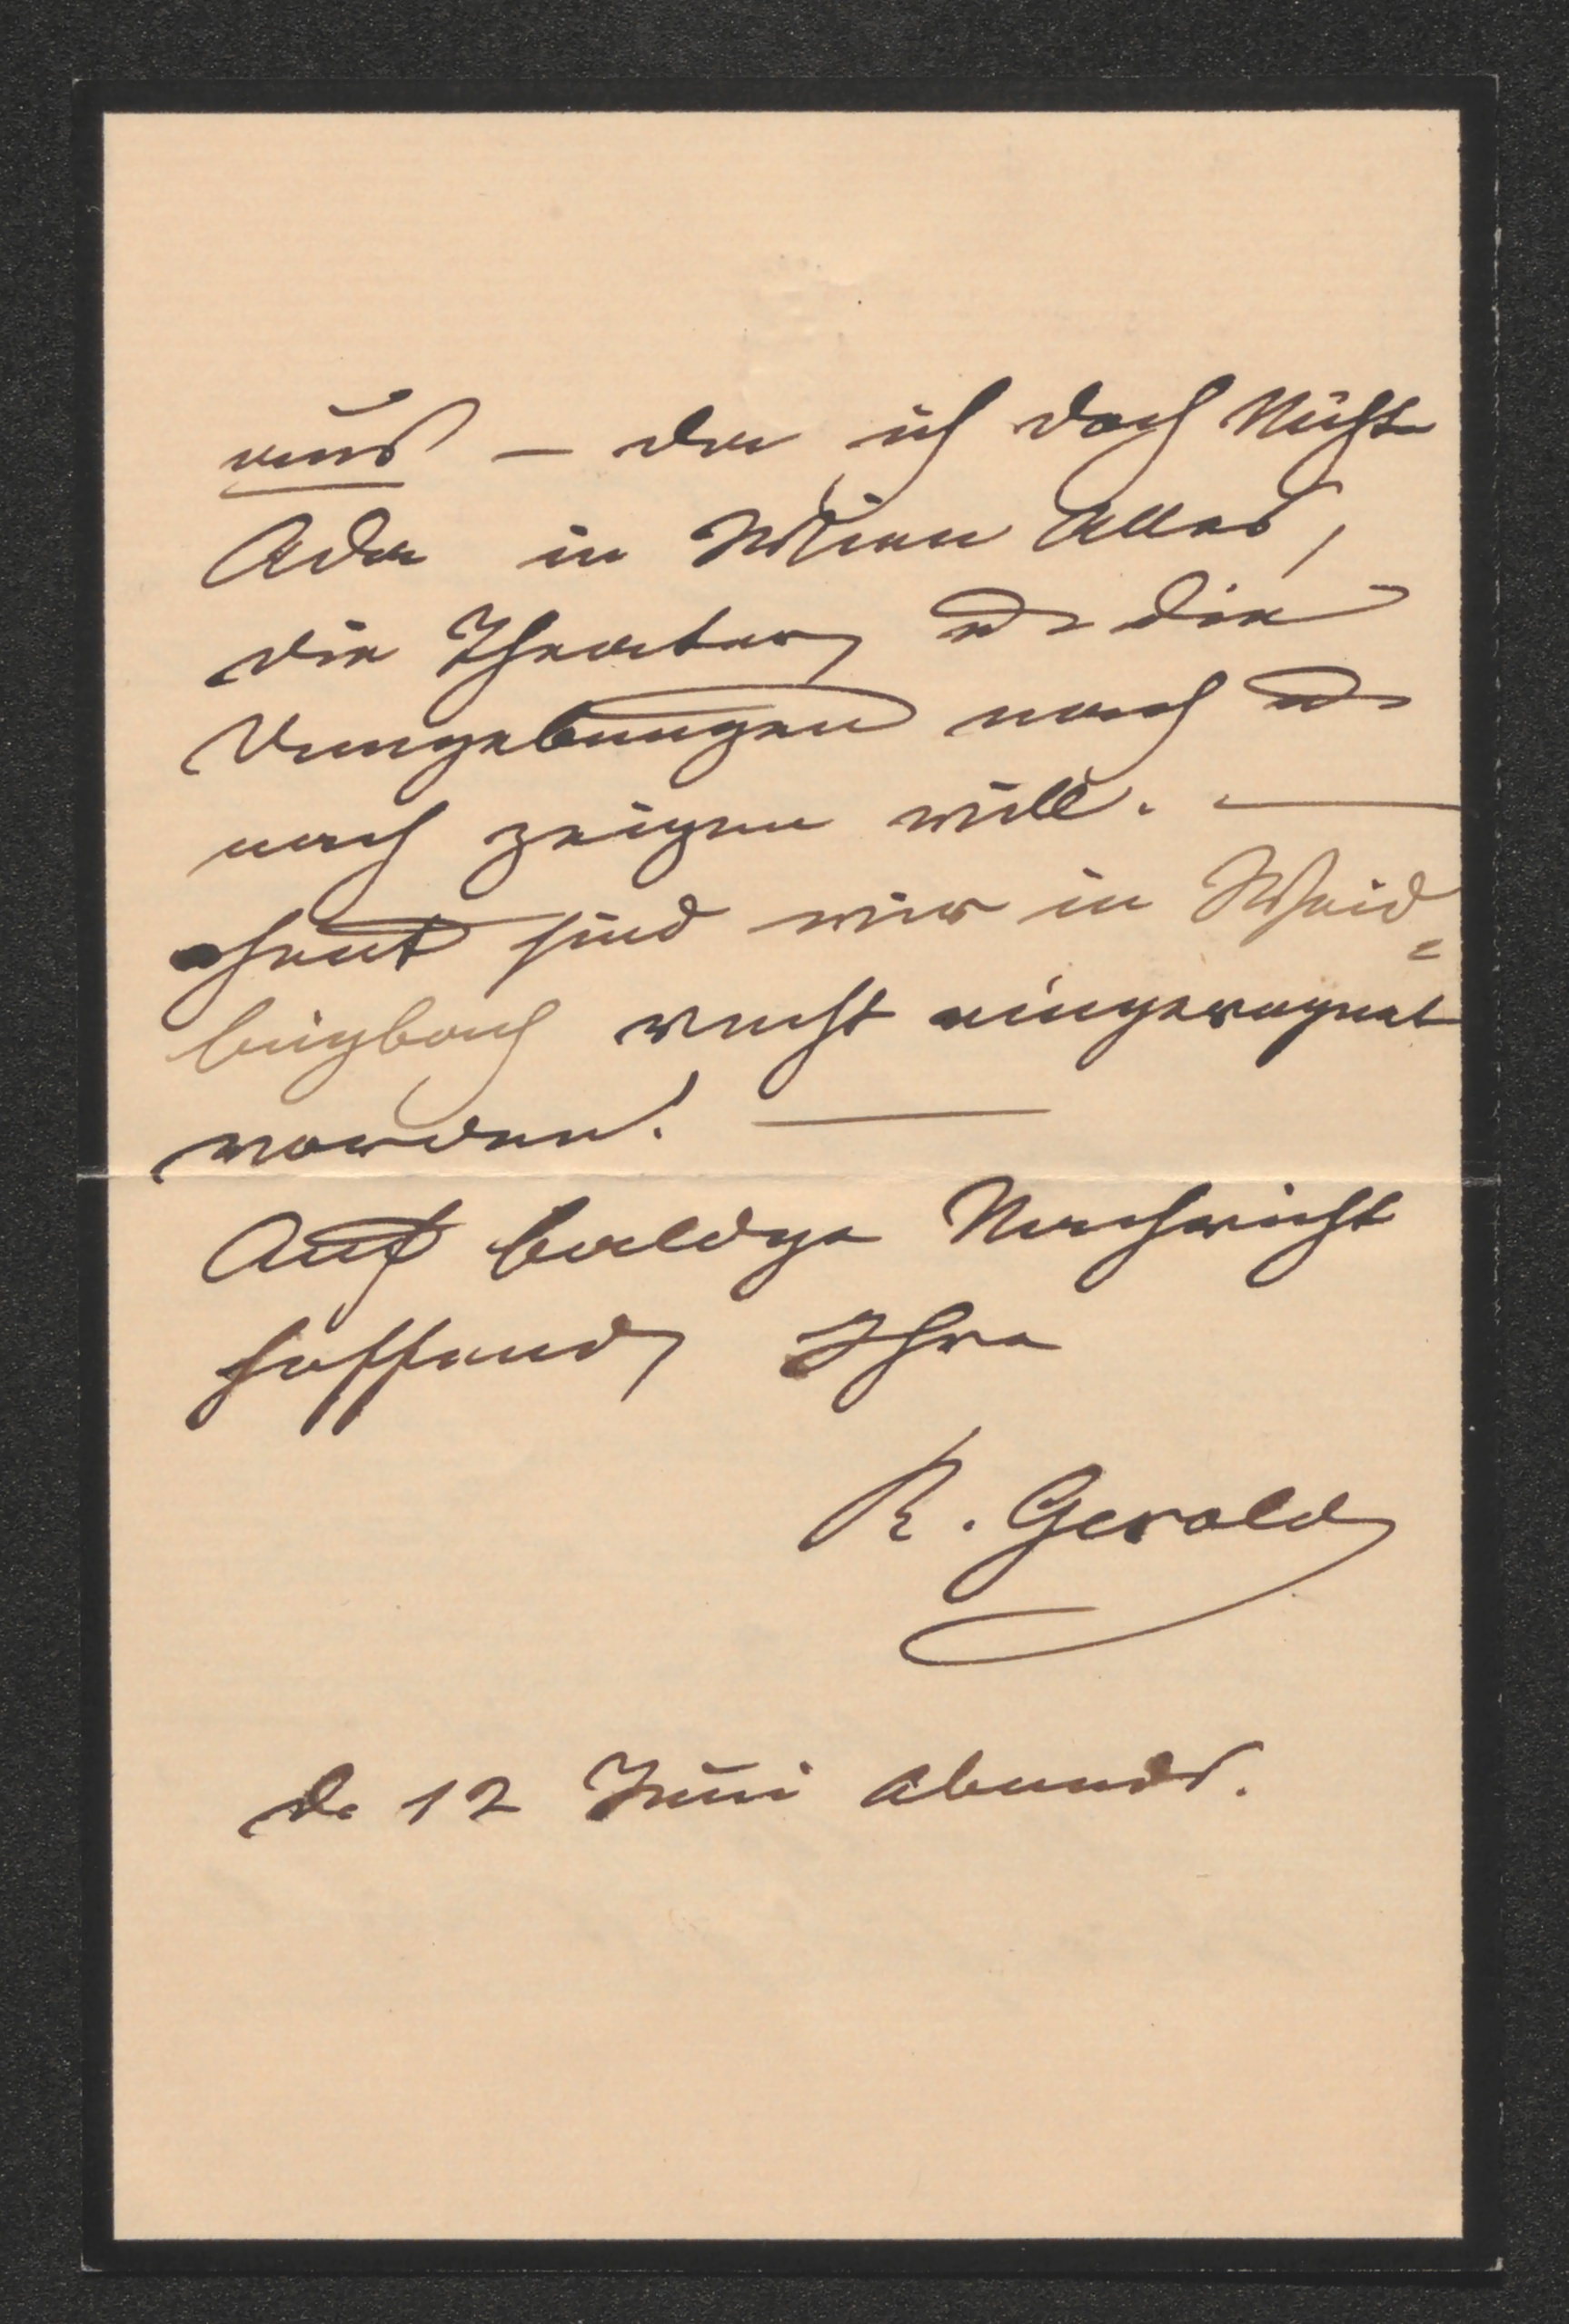 aus – da ich doch Nichte
Ada in Wien Alles,
die Theater, u. die
Umgebungen nach u.
nach zeigen will. —
Heut sind wir in Weid=
lingbach recht eingeregnet
worden! —
Auf baldge Nachricht
hoffend, Ihre
R. Gerold
d. 12 Juni abends.